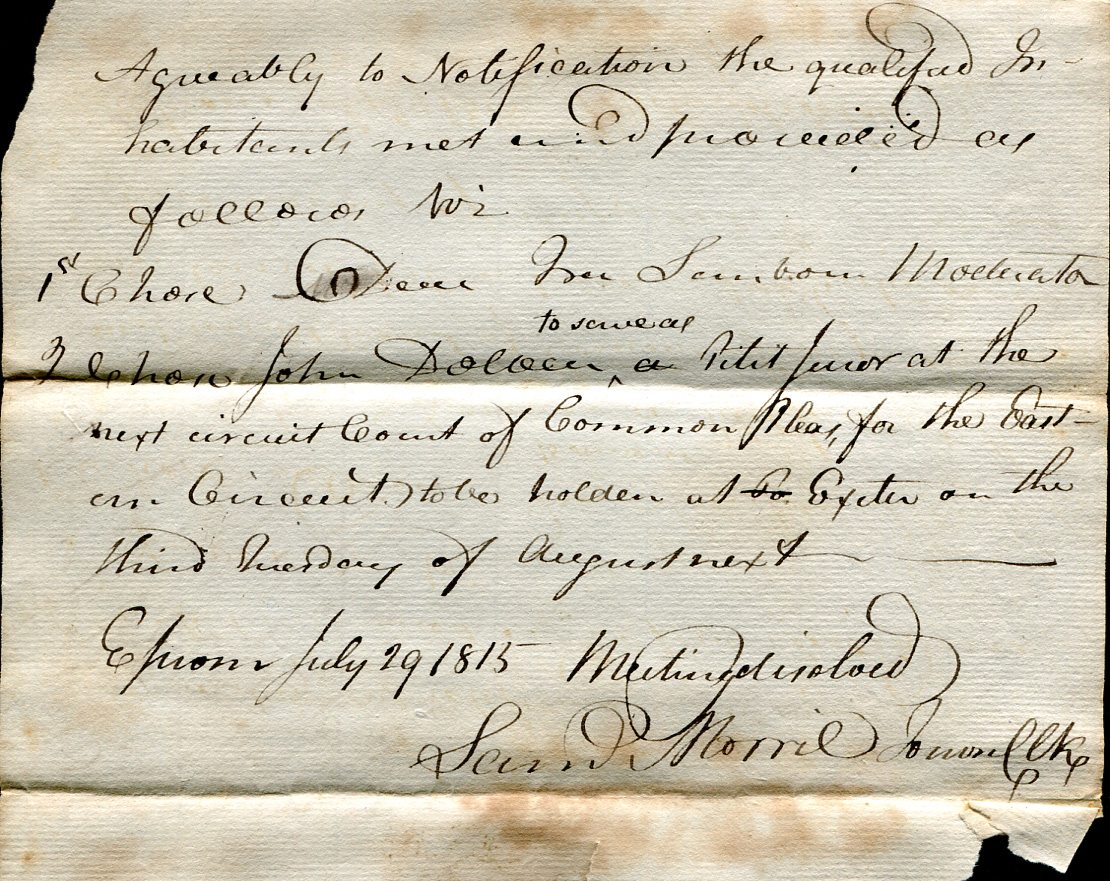 Agreeably to Notification the qualified In-
habitants met and proceeded as
follows Viz
1st Chose Dean Ira Sanborn Moderator
to serve as
2 Chose John Dolbeer a Petit Juror at the
next circuit Court of Common Pleas, for the East-
ern Circuit to be holden at to Exeter on the
third Tuesday of August next
Epsom July 29 1815 Meeting disolved
Samd Morril Town Clk